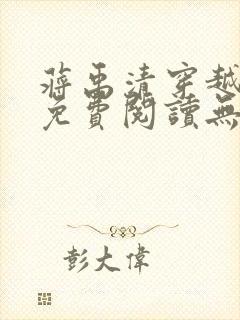 蔣禹清穿越
免費閱讀無
彭大偉